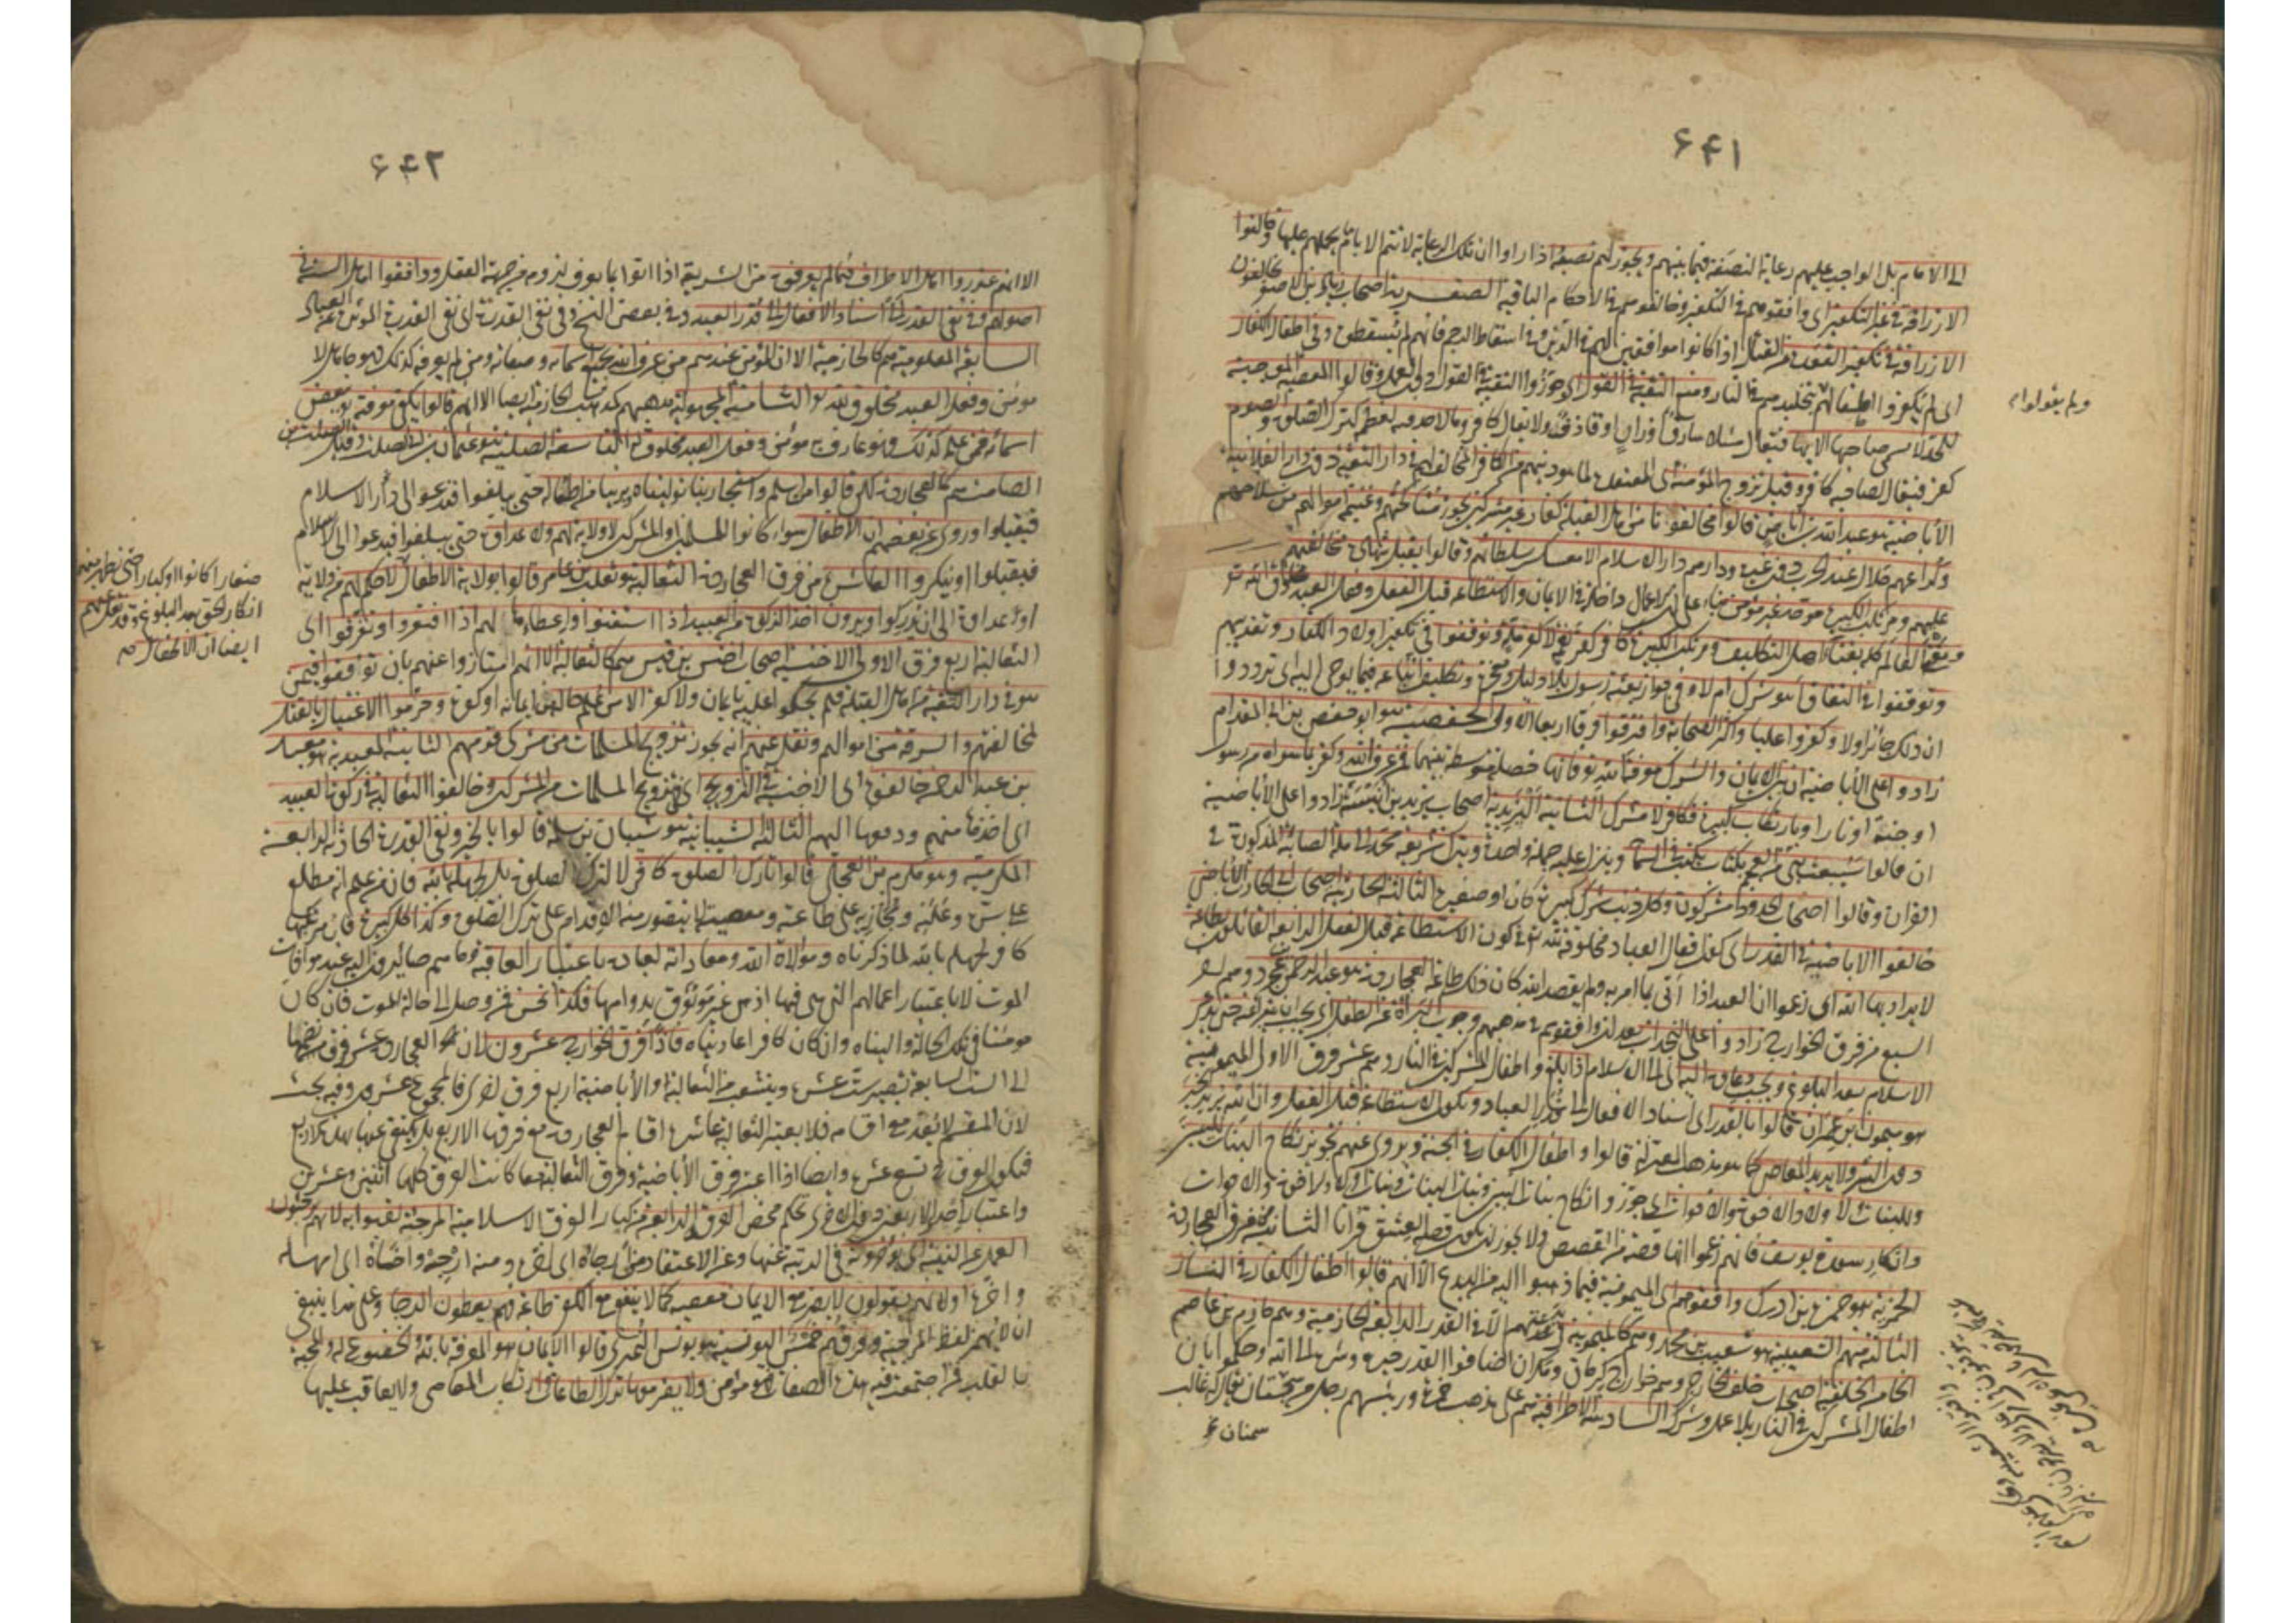 ۶۴۱
الى الامام بل الواجب عليهم رعاية النصفة فيما بينهم ويجوز لهم نصبه اذا راوا ان تلك الرعاية لا تتم الا بامام يحملهم عليها وخالفوا
الازارقة في غير التكفير اى وافقوهم في التكفير وخالفوهم في الاحكام الباقية الصفرية اصحاب زياد بن الاصفر يخالفون
الازارقة في تكفير القعدة عن القتال اذا كانوا موافقين لهم في الدين وفي اسقاط الرجم فانهم لم يسقطوه وفي اطفال الكفار
اى لم يكفروا اطفالهم بتخليدهم في النار ومنع التقية في القول اى جوزوا التقية في القول دون العمل وقالوا المعصية الموجبة
للحد لا يسمى صاحبها الا بها فيقال مثلا سارق او زان او قاذف ولا يقال كافر وما لا حد فيه لعظمه كترك الصلوة والصوم
كفر فيقال لصاحبه كافر وقيل تزوج المؤمنة من الكافر المخالف لهم في دار التقية دون دار العلانية
الاباضية هو عبد الله بن اباض قالوا مخالفونا من اهل القبلة كفار غير مشركين يجوز مناكحتهم وغنيمة اموالهم من سلاحهم
وكراعهم حلال عند الحرب دون غيره ودارهم دار الاسلام الا معسكر سلطانهم وقالوا يقبل شهادة مخالفيهم
عليهم ومرتكب الكبيرة موحد غير مؤمن بناء على ان الاعمال داخلة في الايمان والاستطاعة قبل الفعل وفعل العبد مخلوق لله تعالى
ويفنى العالم كله بفناء اهل التكليف ومرتكب الكبيرة كافر كفر نعمة لا كفر ملة وتوقفوا في تكفير اولاد الكفار وتعذيبهم
وتوقفوا في النفاق اهو شرك ام لا وفي جواز بعثة رسول بلا دليل ومعجزة وتكليف اتباعه فيما يوحى اليه اى ترددوا
ان ذلك جائز اولا وكفروا عليا واكثر الصحابة وافترقوا فرقا اربعا الاولى الحفصية هو ابو حفص بن ابي المقدام
زادوا على الاباضية ان بين الايمان والشرك معرفة الله تعالى فانها خصلة متوسطة بينهما فمن عرف الله وكفر بما سواه من رسول
او جنة او نار او بارتكاب كبيرة فكافر لا مشرك الثانية اليزيدية اصحاب يزيد بن انيسة زادوا على الاباضية
ان قالوا سيبعث نبي من العجم بكتاب يكتب في السماء وينزل عليه جملة واحدة ويترك شريعة محمد الى ملة الصابئة المذكورة في
القران وقالوا اصحاب الحدود مشركون وكل ذنب شرك كبيرة كان او صغيرة الثالثة الحارثية اصحاب ابي الحارث الاباضي
خالفوا الاباضية في القدر اى كون افعال العباد مخلوقة لله تعالى وفي كون الاستطاعة قبل الفعل الرابعة القائلون بطاعة
لا يراد بها الله اى زعموا ان العبد اذا اتى بما امر به ولم يقصد الله كان ذلك طاعة العجاردة هو عبد الرحمن بن عجرد وهم اخر
السبع من فرق الخوارج زادوا على النجدات بعد ان وافقوهم في مذهبهم وجوب البراءة عن الطفل اى يجب ان يتبرأ عنه حتى يدعى
الاسلام بعد البلوغ ويجب دعاؤه اليه اى الى الاسلام اذا بلغ واطفال المشركين في النار وهم عشر فرق الاولى الميمونية
هو ميمون ابن عمران قالوا بالقدر اى اسناد الافعال الى قدر العباد وتكون الاستطاعة قبل الفعل وان الله يريد الخير
دون الشر ولا يريد المعاصي كما هو مذهب المعتزلة قالوا واطفال الكفار في الجنة ويروى عنهم تجويز نكاح البنات للبنين
وللبنات ولاولاد الاخوة والاخوات اى جوزوا نكاح بنات البنين وبنات البنات وبنات اولاد الاخوة والاخوات
وانكار سورة يوسف فانهم زعموا انها قصة من القصص ولا يجوز ان يكون قصة العشق قرانا الثانية من فرق العجاردة
الحمزية هو حمزة بن ادرك وافقوهم اى الميمونية فيما ذهبوا اليه من البدع الا انهم قالوا اطفال الكفار في النار
الثالثة منهم الشعيبية هو شعيب بن محمد وهم كالميمونية في بدعتهم الا في القدر الرابعة الحازمية وهم حازم بن عاصم
الخامسة الخلفية اصحاب خلف الخارجي وهم خوارج كرمان ومكران اضافوا القدر خيره وشره الى الله وحكموا بان
اطفال المشركين في النار بلا عمل وشرك السادسة الاطرافية هم على مذهب حمزة ورئيسهم رجل من سجستان يقال له غالب
ولم يقولوا
۶۴۲
الا انهم عذروا اهل الاطراف فيما لم يعرفوه من الشريعة اذا اتوا بما يعرف لزومه من جهة العقل ووافقوا اهل السنة في
اصولهم وفي نفى القدر اى اسناد الافعال الى قدر العبد وفي بعض النسخ وفي نفى القدرة اى نفى القدرة المؤثرة عن العباد
السابعة المعلومية هم كالحازمية الا ان المؤمن عندهم من عرف الله بجميع اسمائه وصفاته ومن لم يعرفه كذلك فهو جاهل لا
مؤمن وفعل العبد مخلوق لله تعالى الثامنة المجهولية مذهبهم كمذهب الحازمية ايضا الا انهم قالوا يكفى معرفته ببعض
اسمائه فمن علمه كذلك فهو عارف به مؤمن وفعل العبد مخلوق له التاسعة الصلتية هو عثمان بن ابي الصلت وقيل الصلت بن
الصامت هم كالعجاردة لكن قالوا من اسلم واستجار بنا توليناه وبرئنا من اطفاله حتى يبلغوا فيدعوا الى دار الاسلام
فيقبلوا وروى عن بعضهم ان الاطفال سواء كانوا للمسلمين او المشركين لا ولاية لهم ولا عداوة حتى يبلغوا فيدعوا الى الاسلام
فيقبلوا او ينكروا العاشرة من فرق العجاردة الثعالبة هو ثعلب بن عامر قالوا بولاية الاطفال لا حكم لهم من ولاية
او عداوة الى ان يدركوا ويرون اخذ الزكوة من العبيد اذا استغنوا واعطاءها لهم اذا افتقروا وتفرقوا اى
الثعالبة اربع فرق الاولى الاخنسية اصحاب اخنس بن قيس هم كالثعالبة الا انهم امتازوا عنهم بان توقفوا فيمن
هو في دار التقية من اهل القبلة فلم يحكموا عليه بايمان ولا كفر الا من علم حاله من ايمانه او كفره وحرموا الاغتيال بالقتل
لمخالفيهم والسرقة من اموالهم ونقل عنهم انه يجوز تزويج المسلمات من مشركي قومهم الثانية المعبدية هو معبد
بن عبد الرحمن خالفوهم اى الاخنسية في التزويج اى تزويج المسلمات من المشركين وخالفوا الثعالبة في زكوة العبيد
اى اخذها منهم ودفعها اليهم الثالثة الشيبانية هو شيبان بن سلمة قالوا بالجبر ونفى القدرة الحادثة الرابعة
المكرمية وهو مكرم بن العجلي قالوا تارك الصلوة كافر لا لترك الصلوة بل لجهله بالله فان من علم انه مطلع
على سره وعلنه ومجازيه على طاعته ومعصيته لا يتصور منه الاقدام على ترك الصلوة وكذا كل كبيرة فان مرتكبها
كافر لجهله بالله لما ذكرناه وموالاة الله ومعاداته لعباده باعتبار العاقبة وما هم صائرون اليه عند موافاة
الموت لا باعتبار اعمالهم التي هى فيها اذ هى غير موثوق بدوامها فكذا نحن فمن وصل الى حالة الموت فان كان
مومنا في تلك الحالة واليناه وان كان كافرا عاديناه فاذا فرق الخوارج عشرون لان العجاردة عشر فرق بضمها
الى الست السابقة تصير ست عشرة وينشعب من الثعالبة والاباضية اربع فرق اخرى فالمجموع عشرون وفيه بحث
لان المقسم لا يعد مع اقسامه فلا يعد الثعالبة عاشرة اقسام العجاردة مع فرقها الاربع بل يكتفى عنها بهذه الاربع
فيكون الفرق تسع عشرة وايضا اذا اعتبر فرق الاباضية وفرق الثعالبة معا كانت الفرق كلها اثنتين وعشرين
واعتبار احدى الاربعتين دون الاخرى تحكم محض الفرقة الرابعة من كبار الفرق الاسلامية المرجئة لقبوا به لانهم يرجئون
العمل عن النية اى يؤخرونه في الرتبة عنها وعن الاعتقاد من ارجاه اى اخره ومنه ارجه واخاه اى امهله
واخره او لانهم يقولون لا يضر مع الايمان معصية كما لا ينفع مع الكفر طاعة فهم يعطون الرجاء وعلى هذا ينبغى
ان لا يهمز لفظ المرجية وفرقهم خمس اليونسية هو يونس النميرى قالوا الايمان هو المعرفة بالله والخضوع له والمحبة
بالقلب فمن اجتمعت فيه هذه الصفات فهو مؤمن ولا يضر معها ترك الطاعات وارتكاب المعاصى ولا يعاقب عليها
صغارا كانوا او كبارا حتى نظهر منهم
انكار الحق بعد البلوغ وقد نقل عنهم
ايضا ان الاطفال